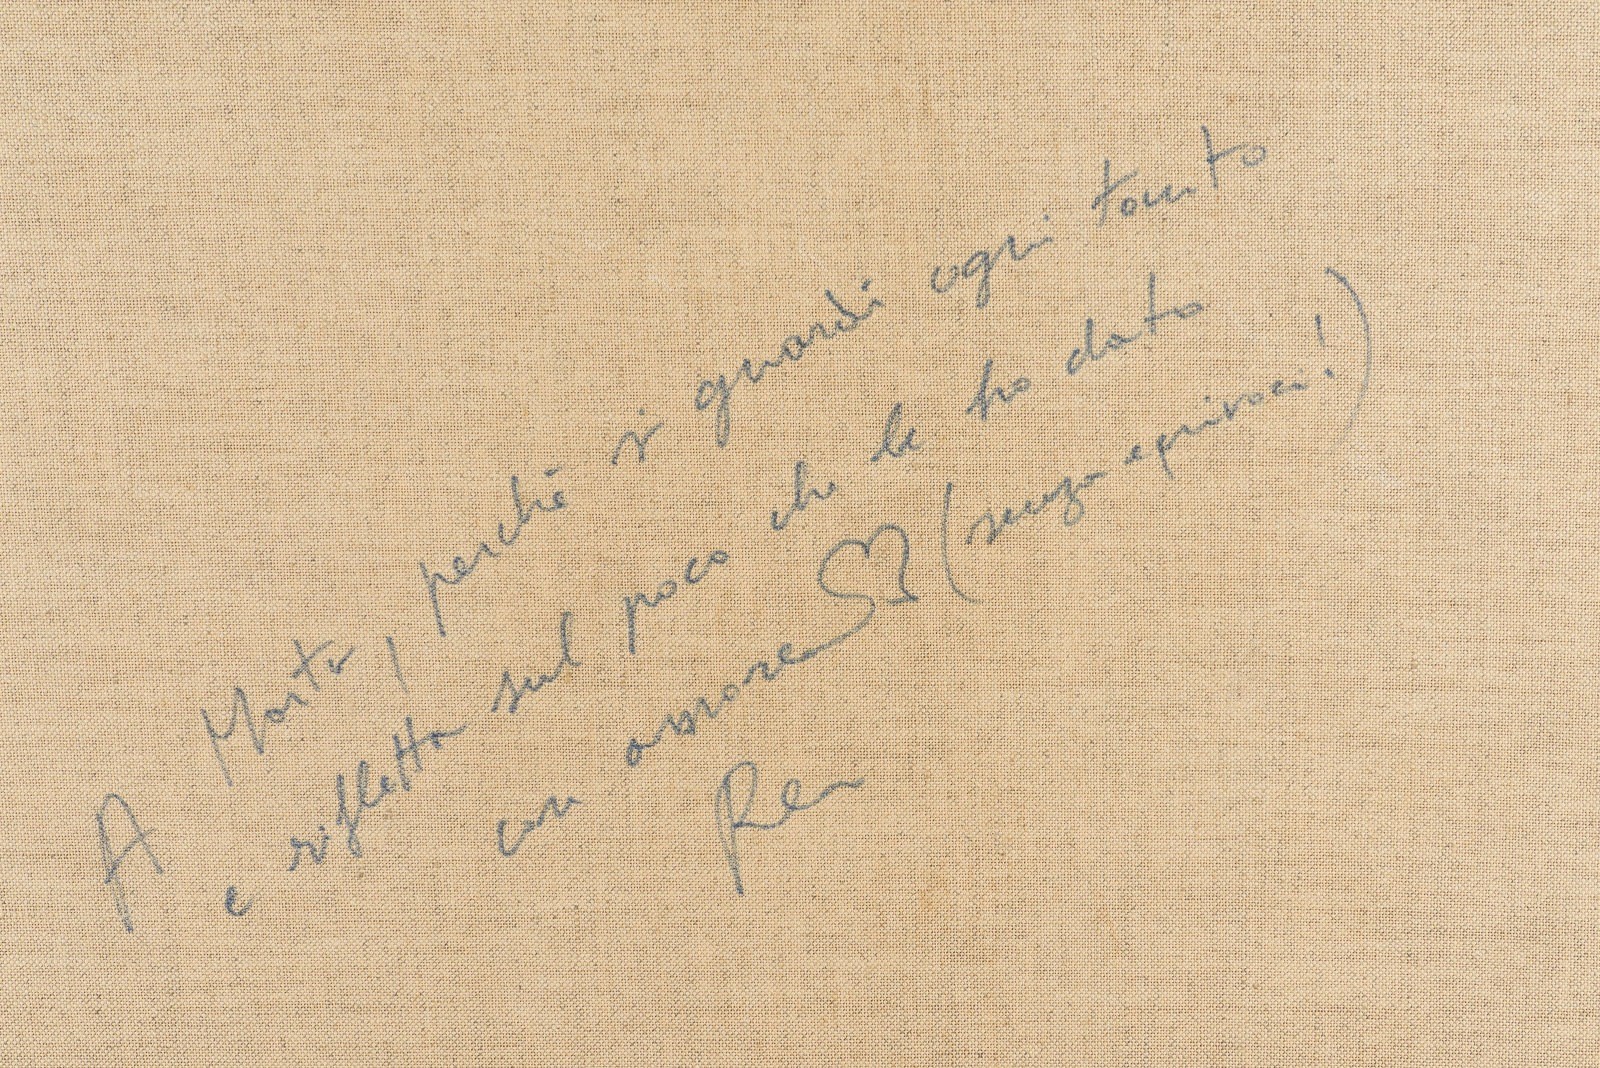 A Marta, perché si guardi ogni tanto
e rifletta sul poco che le ho dato
con amore (senza equivoci!)
Ren